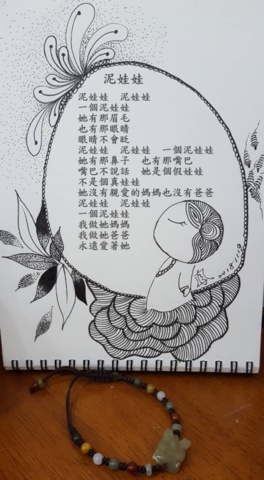 泥娃娃
泥娃娃　泥娃娃
一個泥娃娃
她有那眉毛
也有那眼睛
眼睛不會眨
泥娃娃　泥娃娃　一個泥娃娃
她有那鼻子　也有那嘴巴
嘴巴不說話　她是個假娃娃
不是個真娃娃
她沒有親愛的媽媽也沒有爸爸
泥娃娃　泥娃娃
一個泥娃娃
我做她媽媽
我做她爸爸
永遠愛著她